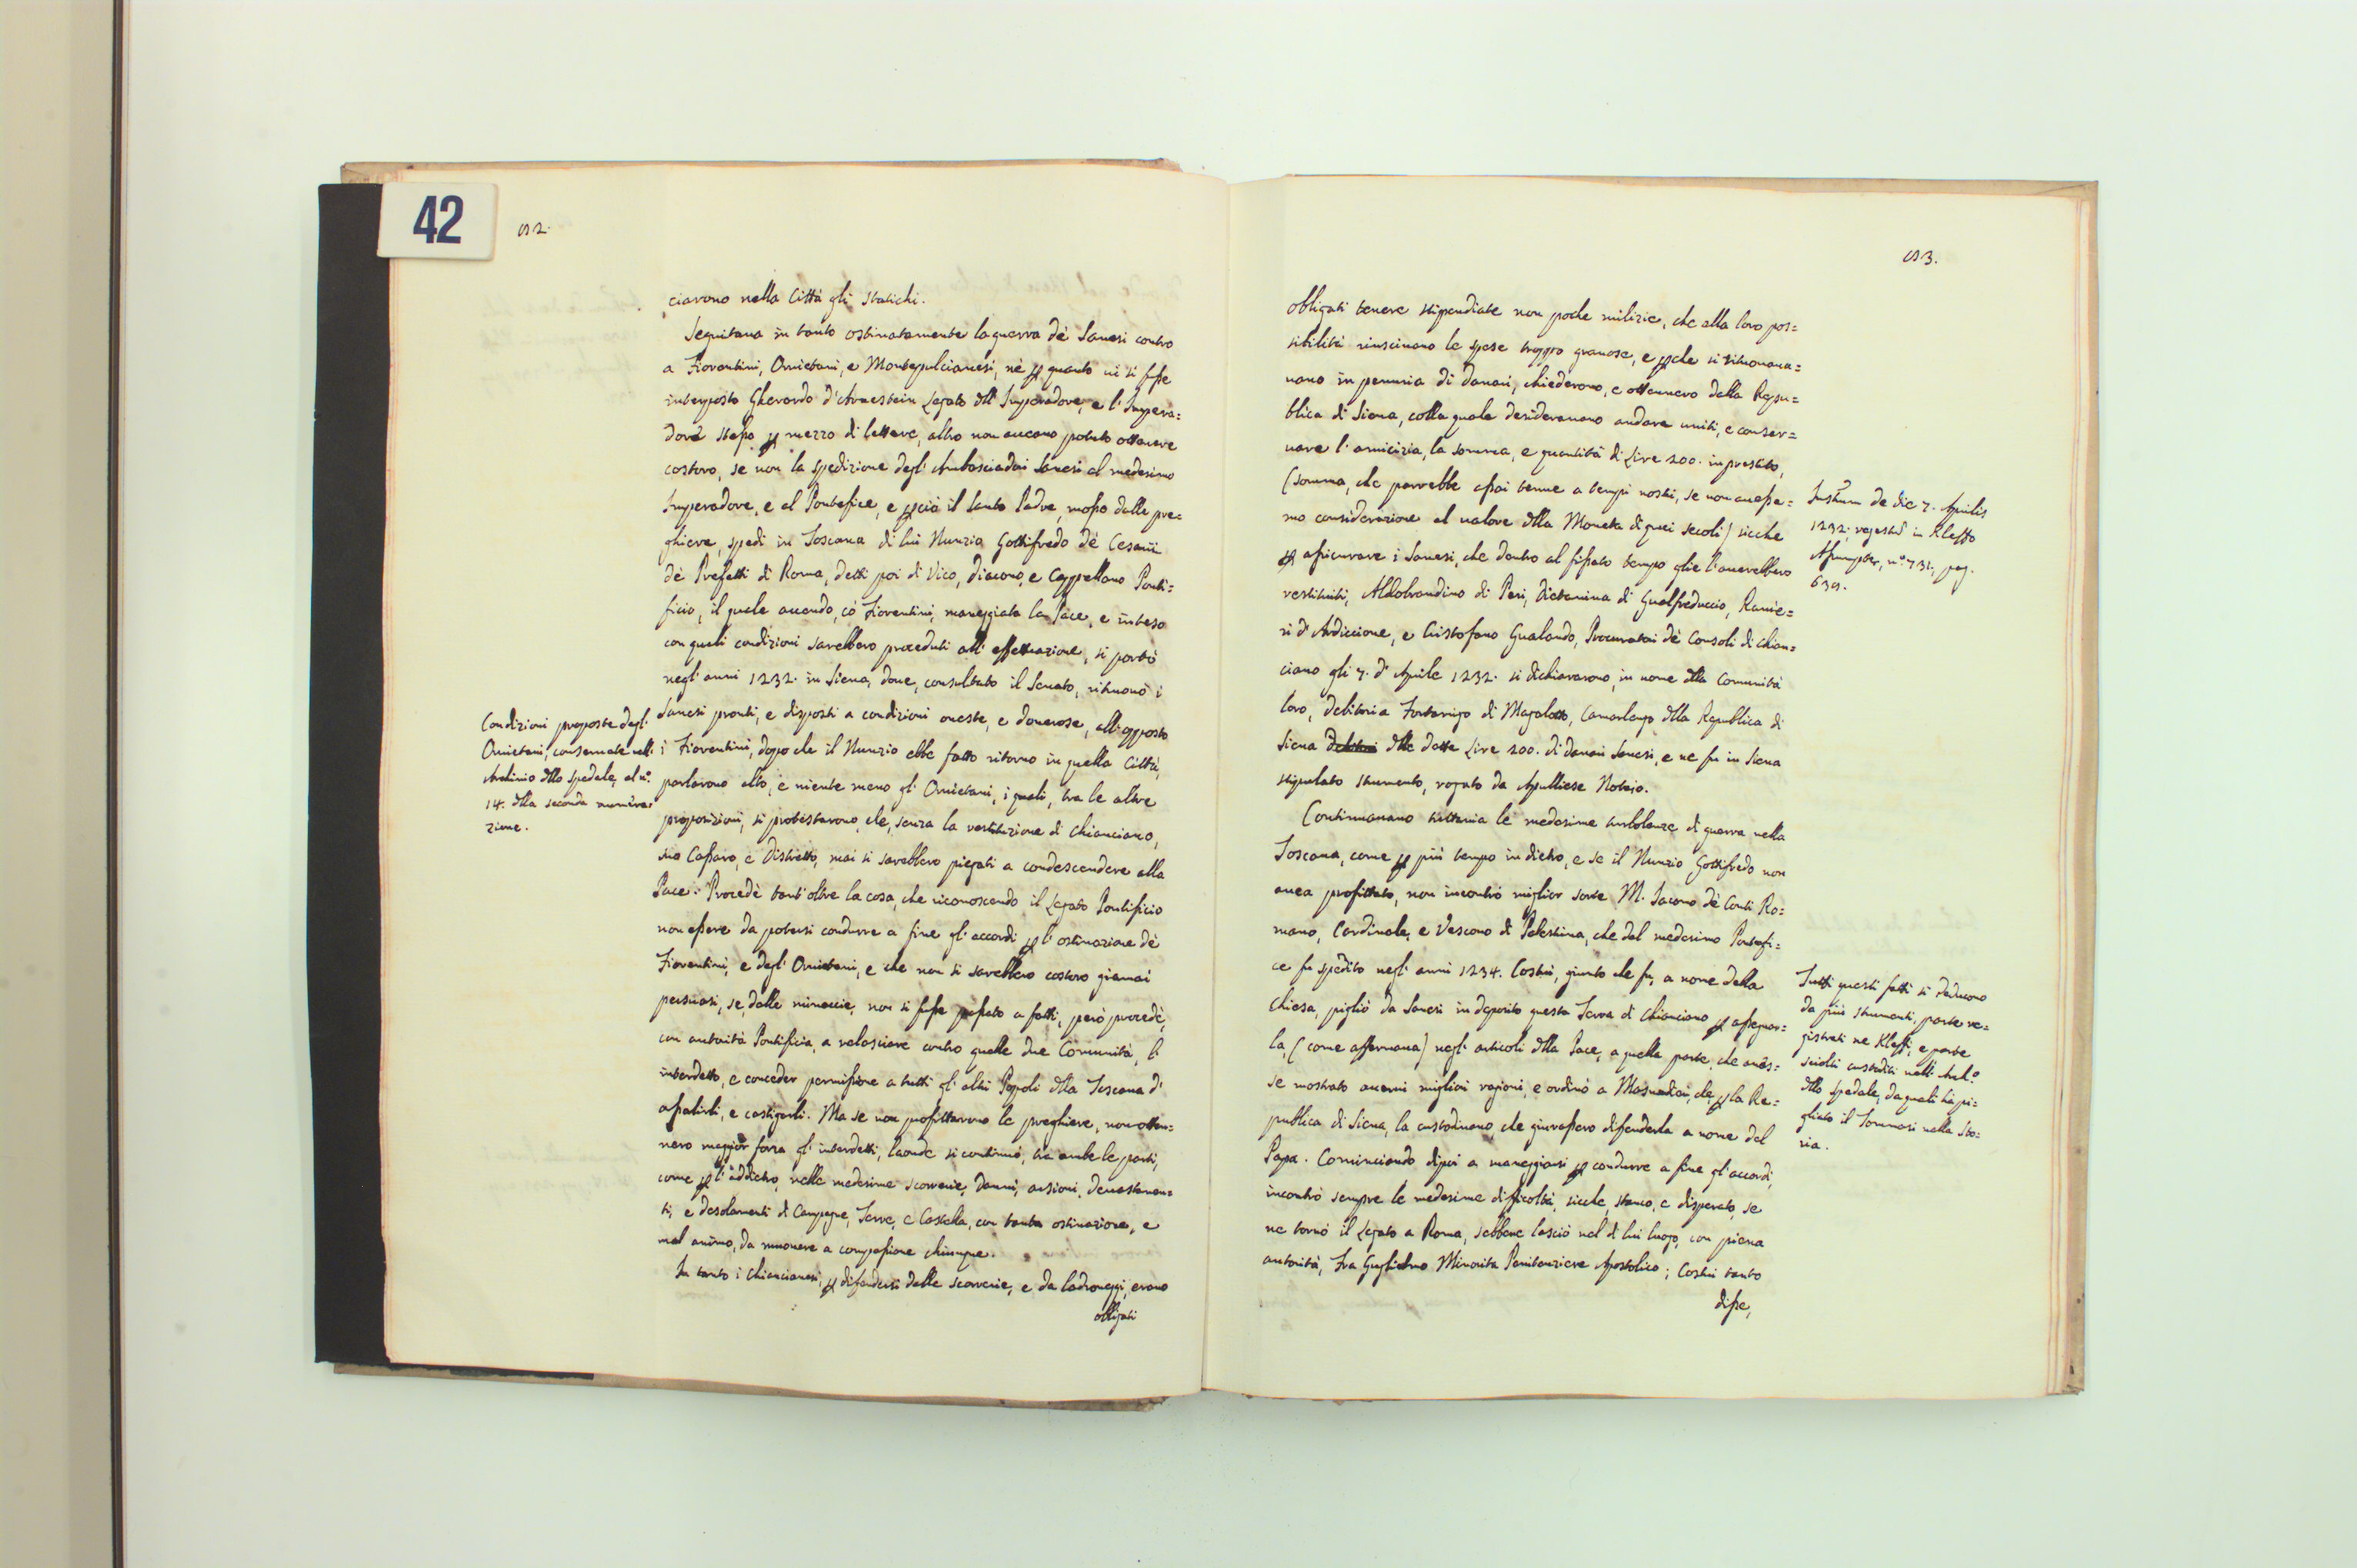 42
52.
ciarono nella Città gli statichi.
Seguitaua in tanto ostinatamente la guerra dè Sanesi contro
a Fiorentini, Oruietani, e Montepulcianesi, nè p quanto ui si fosse
interposto Gherardo d'Arnestein Legato dll' Imperadore, e l'Impera=
dore stesso p mezzo di lettere, altro non aueano potuto ottenere
costoro, se non la spedizione degl' Ambasciadori Sanesi al medesimo
Imperadore, e al Pontefice, e pciò il Santo Padre, mosso dalle pre=
ghiere, spedì in Toscana di lui Nunzio Gottifredo dè Cesarii
dè Prefetti di Roma, detti poi di Vico, Diacono, e Cappellano Ponti=
ficio, il quale auendo, có Fiorentini, maneggiata la Pace, e inteso
con quali condizioni sarebbero proceduti all' effettuazione, si portò
negl' anni 1232. in Siena, doue, consultato il Senato, ritrouò i
Sanesi pronti, e disposti a condizioni oneste, e douerose, all' opposto
i Fiorentini, dopo che il Nunzio ebbe fatto ritorno in quella Città,
parlarono alto, e niente meno gl' Oruietani, i quali, tra le altre
proposizioni, si protestarono che, senza la restituzione di Chianciano,
suo Cassaro, e Distretto, mai si sarebbero piegati a condescendere alla
Pace. Procedè tant' oltre la cosa, che riconoscendo il Legato Pontificio
non essere da potersi condurre a fine gl' accordi p l' ostinazione dè
Fiorentini, e degl' Oruietani, e che non si sarebbero costoro giamai
persuasi, se, dalle minaccie, non si fosse passato a fatti, però procedè,
con autorità Pontificia, a relasciare contro quelle due Comunità, l'
interdetto, e conceder permissione a tutti gl' altri Popoli dlla Toscana d'
assalirli, e castigarli. Ma se non profittarono le preghiere, non otten=
nero maggior forza gl' interdetti, laonde si continuò, tra ambe le parti,
come p l' addietro, nelle medesime scorrerie, danni, arsioni, deuastamen=
ti, e desolamenti di Campagne, Terre, e Castella, con tanta ostinazione, e
mal animo, da muouere a compassione chiunque.
In tanto i Chiancianesi, p difendersi dalle scorrerie, e da ladroneggi, erano
obligati
Condizioni proposte degl'
Oruietani, conseruate nell'
Archiuio dllo Spedale, al n°.
14. dlla seconda numera=
zione.
53.
obligati tenere stipendiate non poche milizie, che alla loro pos=
sibilità riusciuano le spese troppo grauose, e pche si ritrouaua=
uano in penuria di danari, chiederono, e ottennero dalla Repu=
blica di Siena, colla quale desiderauano andare uniti, e conser=
uare l' amicizia, la somma, e quantità di Lire 200. in prestito,
(somma, che parrebbe assai tenue a tempi nostri, se non auesse=
mo considerazione al ualore dlla Moneta di quei secoli) sicche
p assicurare i Sanesi, che dentro al fissato tempo glie l' auerebbero
restituiti, Aldobrandino di Peri, Dietanina di Gualfreduccio, Ranie=
ri d' Ardiccione, e Cristofano Gualando, Procuratori dè Consoli di Chian=
ciano gli 7. d' Aprile 1232. si dichiararono, in nome dlla Comunità
loro, debitori a Fortarrigo di Magalotto, Camarlengo dlla Republica di
Siena dlle dette Lire 200. di danari Sanesi, e ne fu in Siena
stipulato strumento, rogato da Apulliese Notaio.
Continuauano tuttauia le medesime turbolenze di guerra nella
Toscana, come p più tempo in dietro, e se il Nunzio Gottifredo non
auea profittato, non incontrò miglior sorte M. Iacomo dè Conti Ro=
mano, Cardinale, e Vescouo di Palestrina, che dal medesimo Pontefi=
ce fu spedito negl' anni 1234. Costui, giunto che fu, a nome della
Chiesa, pigliò da Sanesi in deposito questa Terra di Chianciano p assegnar=
la, (come affermaua) negl' articoli dlla Pace, a quella parte, che aués=
se mostrato auerui migliori ragioni, e ordinò a Masnadieri, che p la Re=
publica di Siena, la custodiuano, che giurassero difenderla a nome del
Papa. Cominciando dipoi a maneggiarsi p condurre a fine gl' accordi,
incontrò sempre le medesime difficoltà, sicche, stanco, e disperato, se
ne tornò il Legato a Roma, sebbene lasciò nel di lui luogo, con piena
autorità, Fra Guglielmo Minorita Penitenziere Apostolico; Costui tanto
disse,
Instrum de die 7. Aprilis
1232. registrat in Kleffo
Assumpter, n° 731, pag.
639.
Tutti questi fatti si deducono
da più strumenti, parte re=
gistrati ne Kleffi, e parte
sciolti custoditi nell' Arch°.
dllo Spedale, da quali hà pi=
gliato il Tommasi nella Sto=
ria.